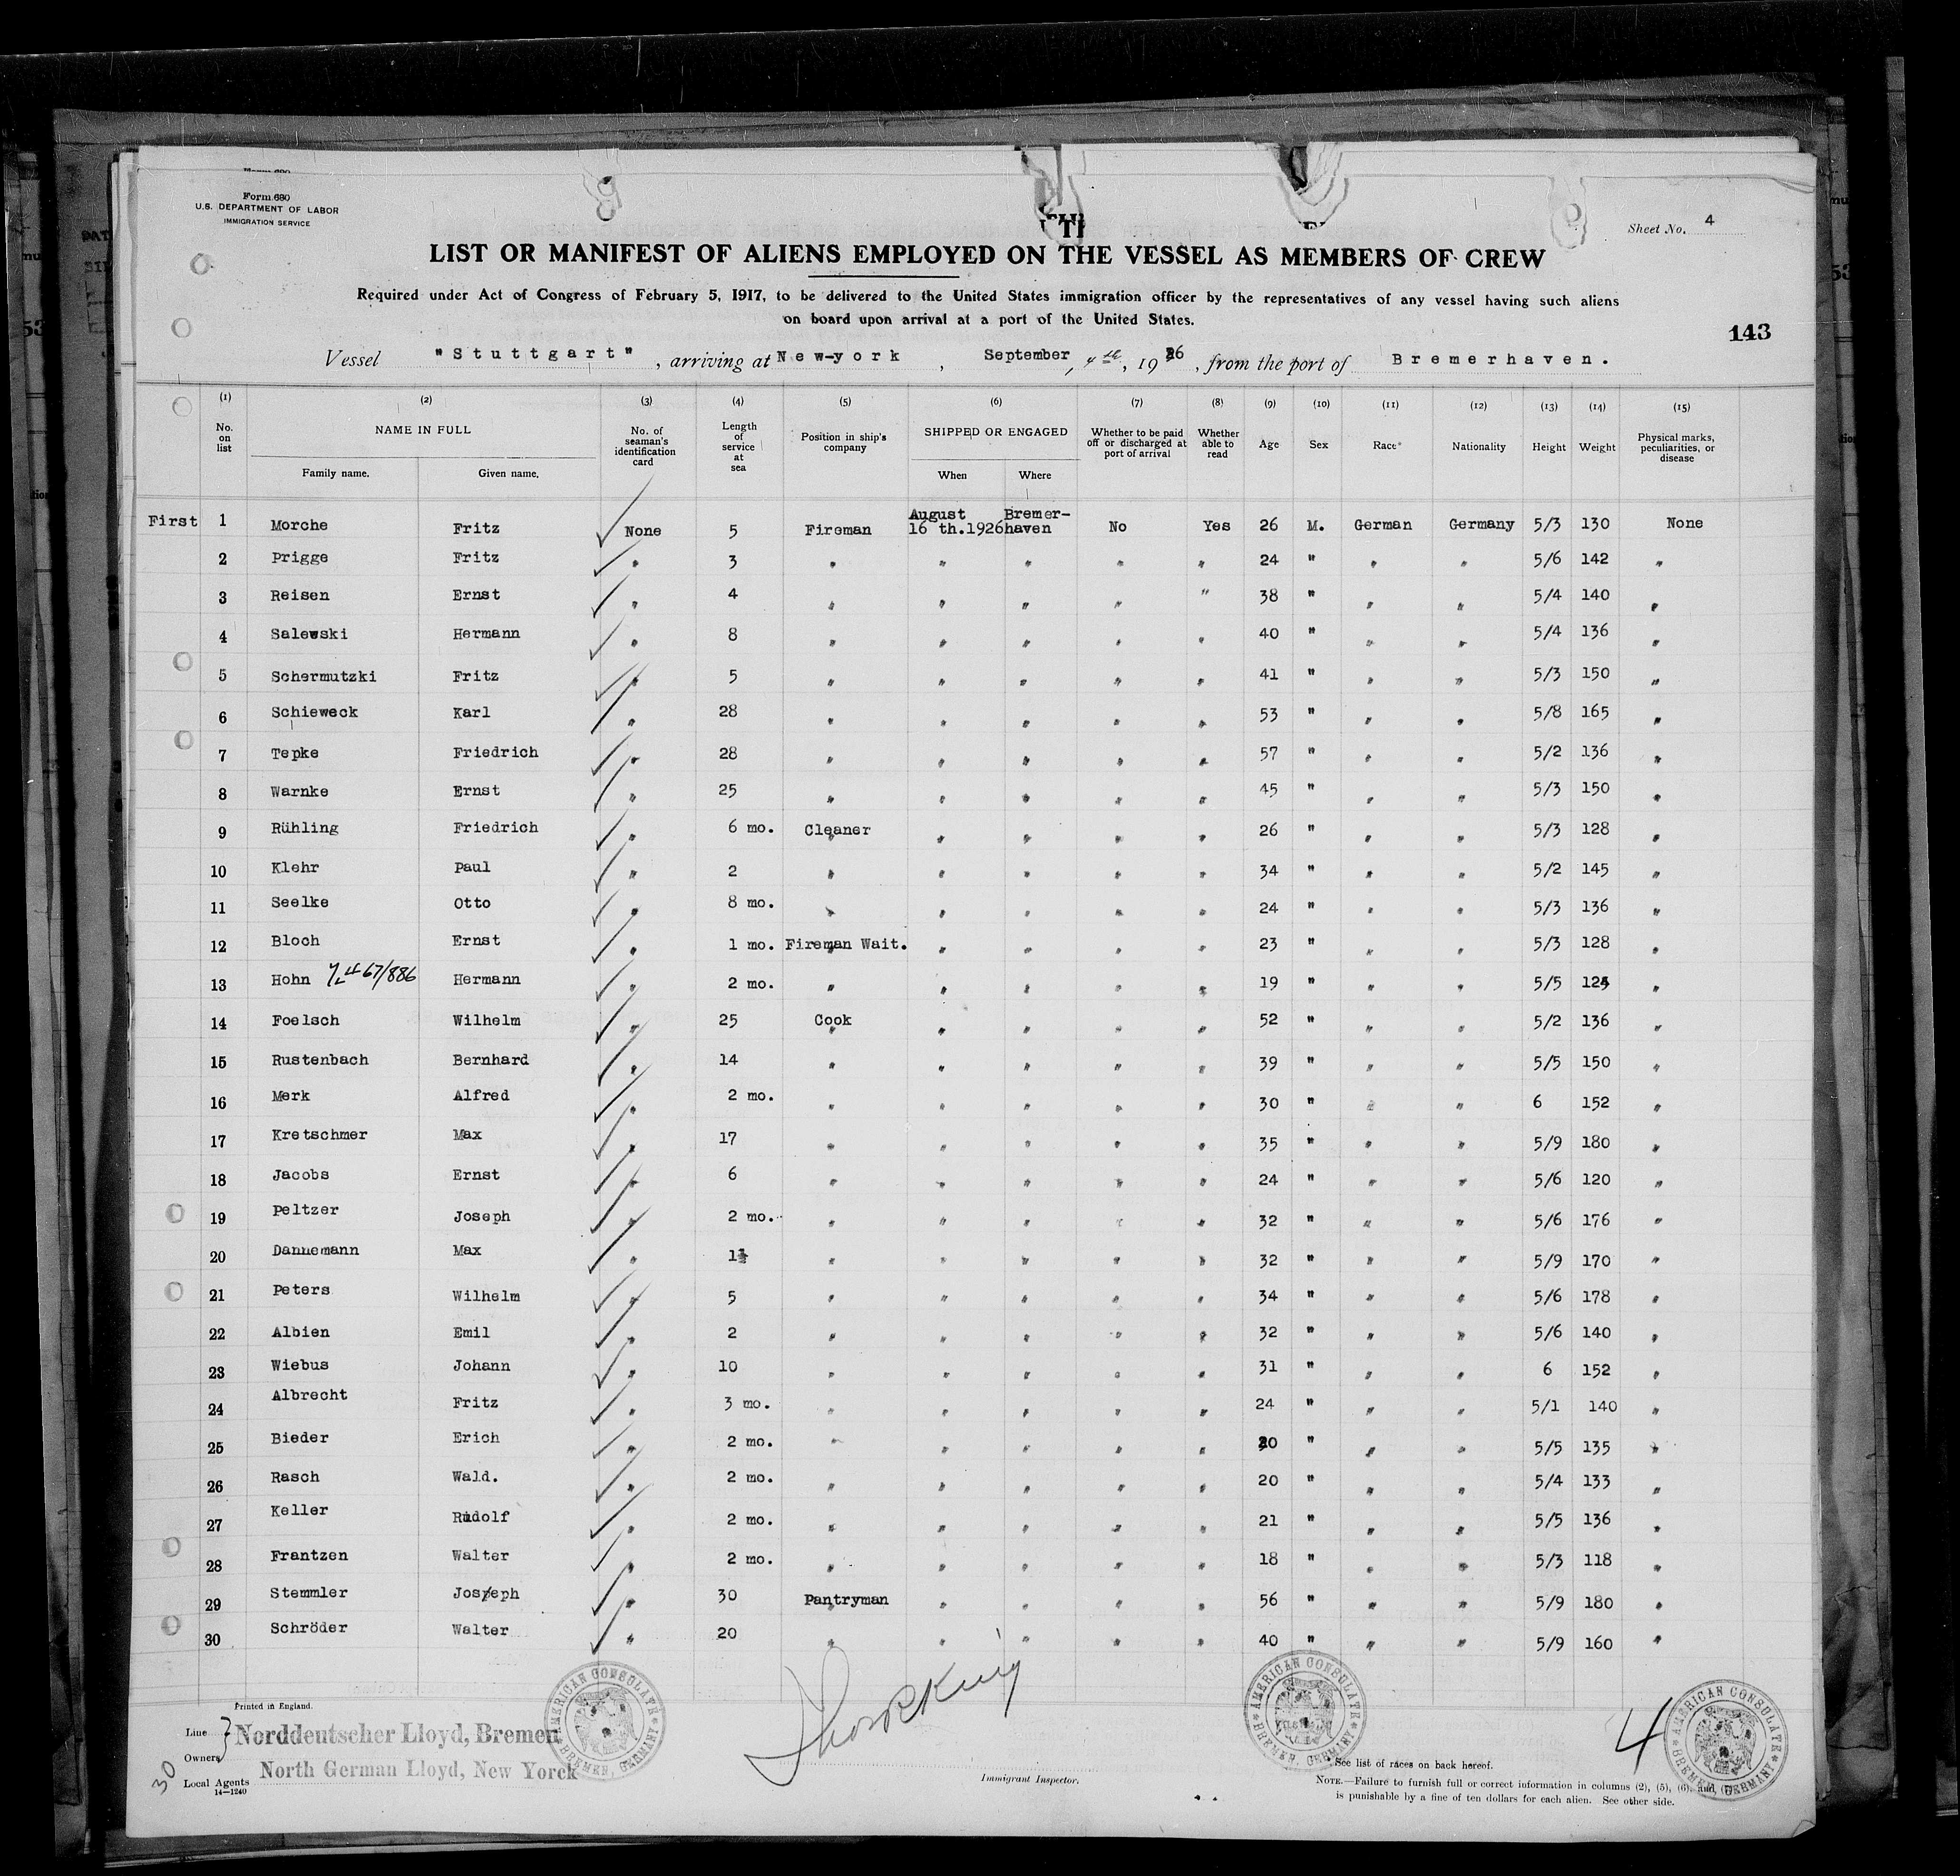 Form 680
U.S. DEPARTMENT OF LABOR
IMMIGRATION SERVICE
Sheet No. 4
LIST OR MANIFEST OF ALIENS EMPLOYED ON THE VESSEL AS MEMBERS OF CREW
Required under Act of Congress of February 5, 1917, to be delivered to the United States immigration officer by the representatives of any vessel having such aliens
on board upon arrival at a port of the United States.
143
Vessel "Stuttgart", arriving at New-york, September, 4th, 1926, from the port of Bremerhaven.
(1) (2) (3) (4) (5) (6) (7) (8) (9) (10) (11) (12) (13) (14) (15)
No. on list NAME IN FULL Family name. Given name. No. of seaman's identification card Length of service at sea Position in ship's company SHIPPED OR ENGAGED When Where Whether to be paid off or discharged at port of arrival Whether able to read Age Sex Race* Nationality Height Weight Physical marks, peculiarities, or disease
First 1 Morche Fritz None 5 Fireman August 16 th.1926 Bremer-haven No Yes 26 M. German Germany 5/3 130 None
2 Prigge Fritz " 3 " " " " " 24 " " " 5/6 142 "
3 Reisen Ernst " 4 " " " " " 38 " " " 5/4 140 "
4 Salewski Hermann " 8 " " " " " 40 " " " 5/4 136 "
5 Schermutzki Fritz " 5 " " " " " 41 " " " 5/3 150 "
6 Schieweck Karl " 28 " " " " " 53 " " " 5/8 165 "
7 Tepke Friedrich " 28 " " " " " 57 " " " 5/2 136 "
8 Warnke Ernst " 25 " " " " " 45 " " " 5/3 150 "
9 Rühling Friedrich " 6 mo. Cleaner " " " " 26 " " " 5/3 128 "
10 Klehr Paul " 2 " " " " " 34 " " " 5/2 145 "
11 Seelke Otto " 8 mo. " " " " " 24 " " " 5/3 136 "
12 Bloch Ernst " 1 mo. Fireman Wait. " " " " 23 " " " 5/3 128 "
13 Hohn Hermann " 2 mo. " " " " " 19 " " " 5/5 124 "
14 Foelsch Wilhelm " 25 Cook " " " " 52 " " " 5/2 136 "
15 Rustenbach Bernhard " 14 " " " " " 39 " " " 5/5 150 "
16 Merk Alfred " 2 mo. " " " " " 30 " " " 6 152 "
17 Kretschmer Max " 17 " " " " " 35 " " " 5/9 180 "
18 Jacobs Ernst " 6 " " " " " 24 " " " 5/6 120 "
19 Peltzer Joseph " 2 mo. " " " " " 32 " " " 5/6 176 "
20 Dannemann Max " " " " " " 32 " " " 5/9 170 "
21 Peters Wilhelm " 5 " " " " " 34 " " " 5/6 178 "
22 Albien Emil " 2 " " " " " 32 " " " 5/6 140 "
23 Wiebus Johann " 10 " " " " " 31 " " " 6 152 "
24 Albrecht Fritz " 3 mo. " " " " " 24 " " " 5/1 140 "
25 Bieder Erich " 2 mo. " " " " " 20 " " " 5/5 135 "
26 Rasch Wald. " 2 mo. " " " " " 20 " " " 5/4 133 "
27 Keller Rudolf " 2 mo. " " " " " 21 " " " 5/5 136 "
28 Frantzen Walter " 2 mo. " " " " " 18 " " " 5/3 118 "
29 Stemmler Joseph " 30 Pantryman " " " " 56 " " " 5/9 180 "
30 Schröder Walter " 20 " " " " " 40 " " " 5/9 160 "
Printed in England.
Line Norddeutscher Lloyd, Bremen
Owners
Local Agents North German Lloyd, New York
14—1240
30
AMERICAN CONSULATE BREMEN, GERMANY
Immigrant Inspector.
AMERICAN CONSULATE BREMEN, GERMANY
4
AMERICAN CONSULATE BREMEN, GERMANY
* See list of races on back hereof.
NOTE.—Failure to furnish full or correct information in columns (2), (5), (6), and, (7)
is punishable by a fine of ten dollars for each alien. See other side.